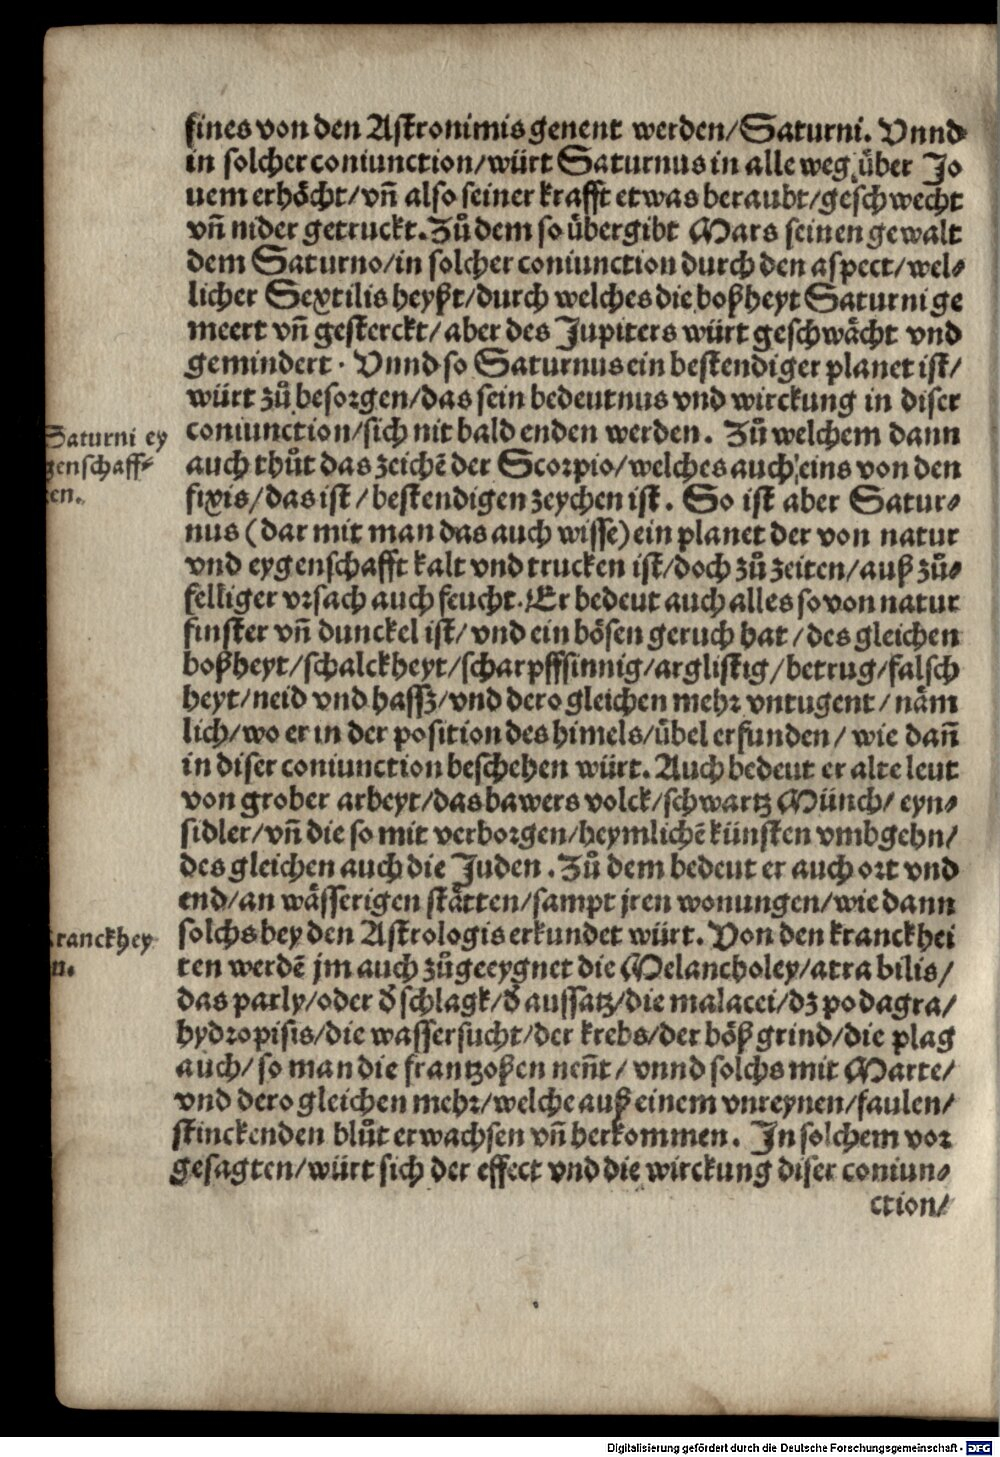 fines von den Astronimis genent werden/Saturni. Vnnd
in solcher coniunction/würt Saturnus in alle weg über Jo
uem erhöcht/vñ also seiner krafft etwas beraubt/geschwecht
vñ nider getruckt. Zů dem so übergibt Mars seinen gewalt
dem Saturno/in solcher coniunction durch den aspect/wel-
licher Sextilis heyßt/durch welches die boßheyt Saturni ge
meert vñ gesterckt/aber des Jupiters würt geschwächt vnd
gemindert. Vnnd so Saturnus ein bestendiger planet ist/
würt zů besorgen/das sein bedeutnus vnd wirckung in diser
coniunction/sich nit bald enden werden. Zů welchem dann
Saturni ey
genschaff-
ten.
auch thůt das zeichē der Scorpio/welches auch eins von den
fixis/das ist/bestendigen zeychen ist. So ist aber Satur-
nus (dar mit man das auch wisse) ein planet der von natur
vnd eygenschafft kalt vnd trucken ist/doch zů zeiten/auß zů-
felliger vrsach auch feucht. Er bedeut auch alles so von natur
finster vñ dunckel ist/vnd ein bösen geruch hat/des gleichen
boßheyt/schalckheyt/scharpffsinnig/arglistig/betrug/falsch
heyt/neid vnd hassz/vnd dero gleichen mehr vntugent/näm
lich/wo er in der position des himels/übel erfunden/wie dañ
in diser coniunction beschehen würt. Auch bedeut er alte leut
von grober arbeyt/das bawers volck/schwartz Münch/eyn-
sidler/vñ die so mit verborgen/heymlichē künsten vmbgehn/
des gleichen auch die Juden. Zů dem bedeut er auch ort vnd
end/an wässerigen stätten/sampt jren wonungen/wie dann
solchs bey den Astrologis erkundet würt. Von den kranckhei
Kranckhey
en.
ten werdē jm auch zůgeeygnet die Melancholey/atra bilis/
das parly/oder d̕ schlagk/d̕ aussatz/die malacei/dz podagra/
hydropisis/die wassersucht/der krebs/der böß grind/die plag
auch/so man die frantzoßen neñt/vnnd solchs mit Marte/
vnd dero gleichen mehr/welche auß einem vnreynen/faulen/
stinckenden blůt erwachsen vñ herkommen. In solchem vor
gesagten/würt sich der effect vnd die wirckung diser coniun-
ction/
Digitalisierung gefördert durch die Deutsche Forschungsgemeinschaft - DFG